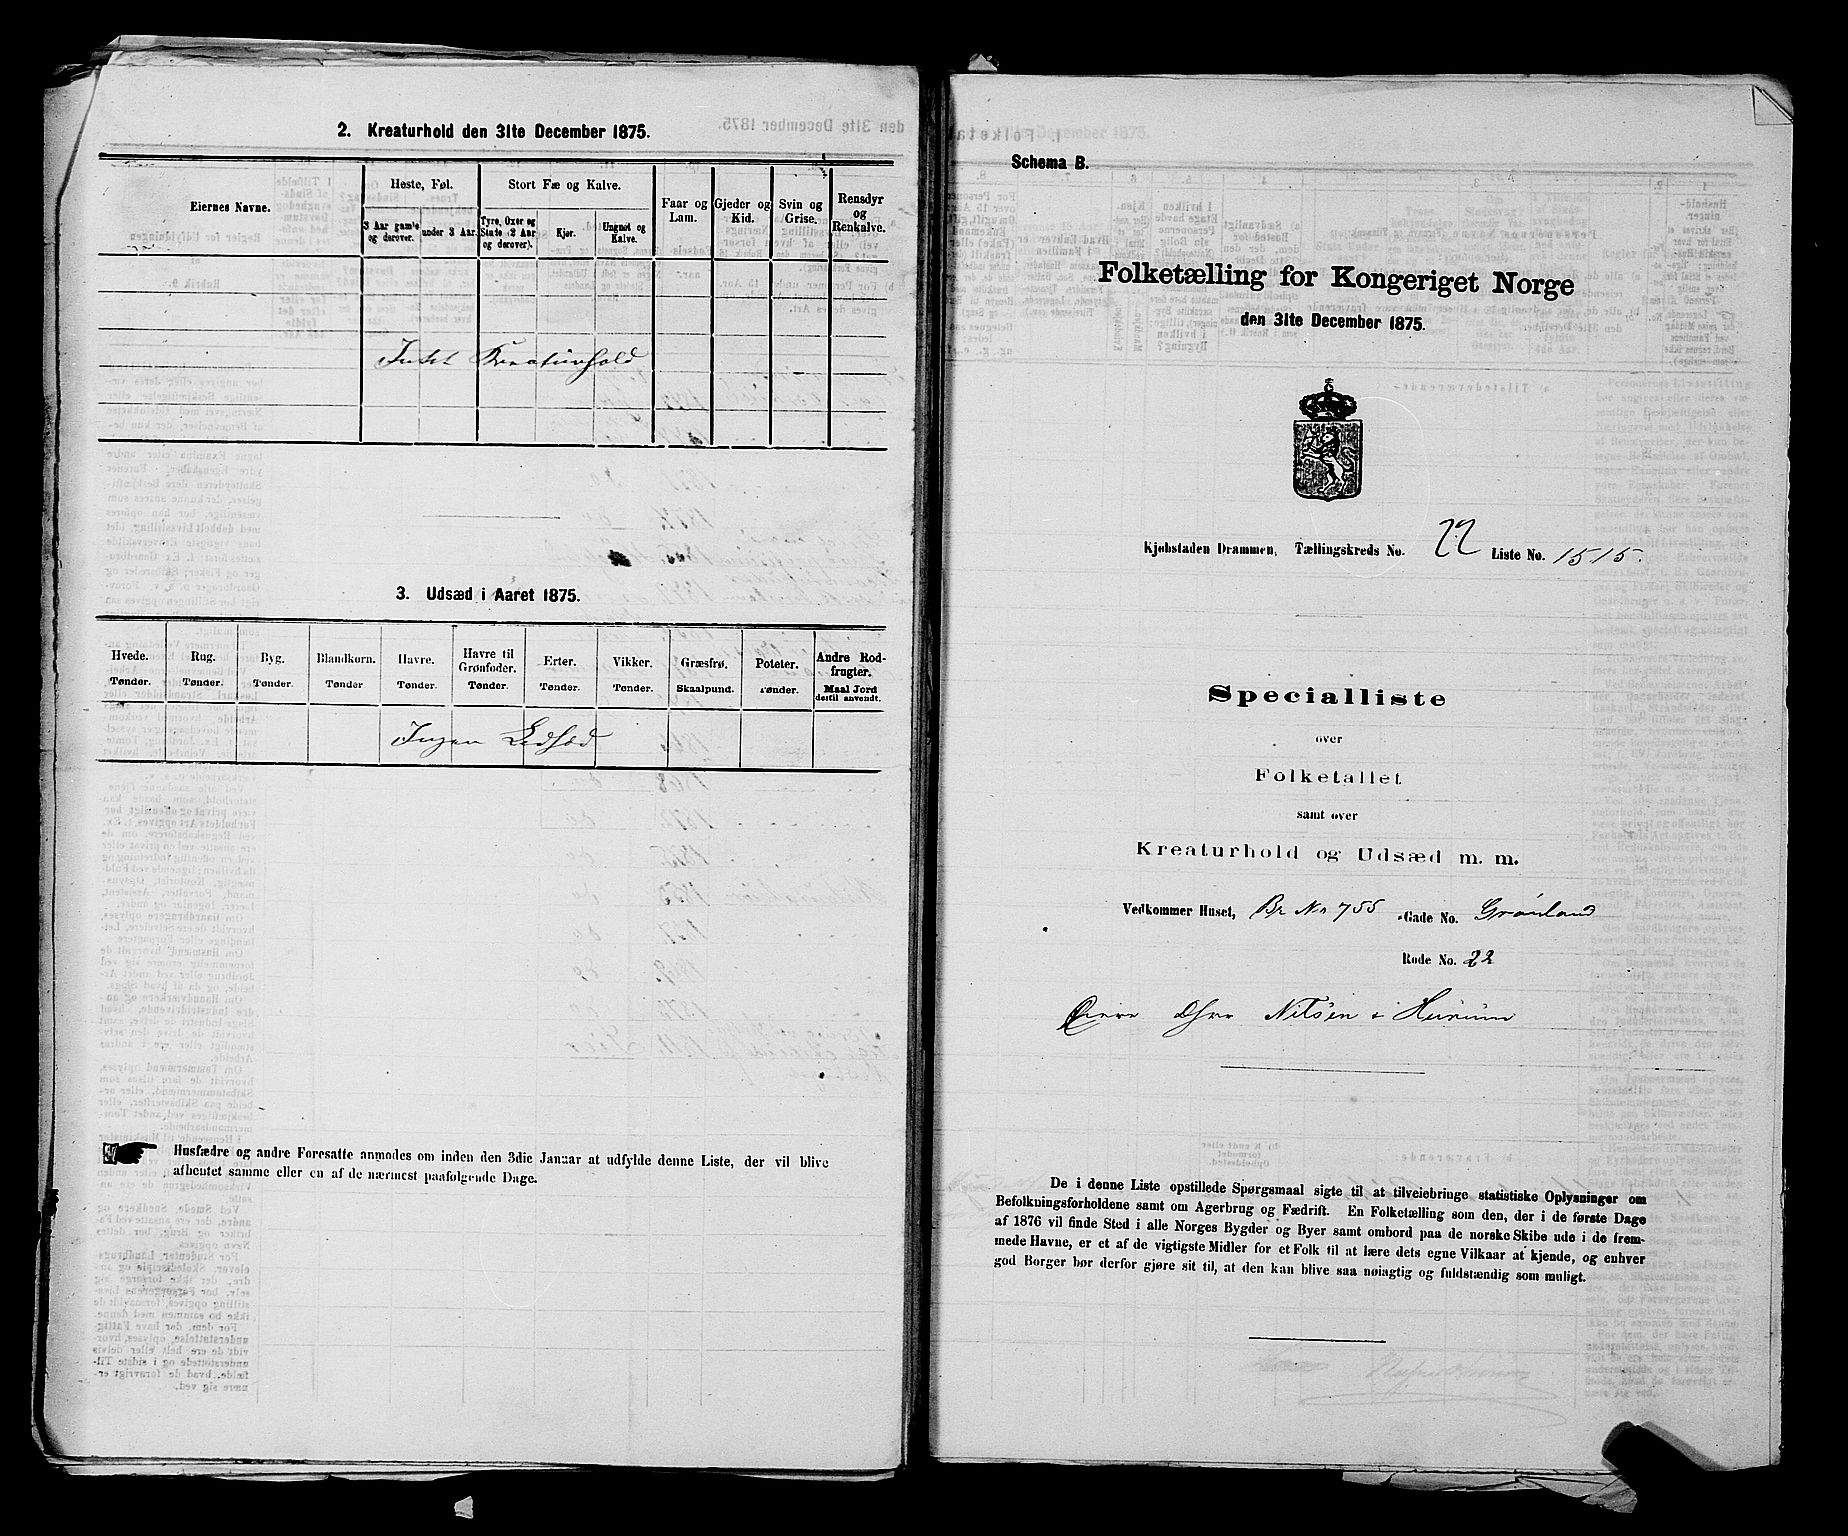 2. Kreaturhold den 31te December 1875.
Eiernes Navne.
Heste, Føl.
3 Aar gamle og derover.
under 3 Aar.
Stort Fæ og Kalve.
Tyre, Oxer og Stude (2 Aar og derover).
Kjør.
Ungnøt og Kalve.
Faar og Lam.
Gjeder og Kid.
Svin og Grise.
Rensdyr og Renkalve.
Intet Kreaturhold
3. Udsæd i Aaret 1875.
Hvede. Tønder.
Rug. Tønder.
Byg. Tønder.
Blandkorn. Tønder
Havre. Tønder.
Havre til Grønfoder. Tønder.
Erter. Tønder.
Vikker. Tønder.
Græsfrø. Skaalpund.
Poteter. Tønder.
Andre Rodfrugter. Maal Jord dertil anvendt.
Ingen Udsæd
Husfædre og andre Foresatte anmodes om inden den 3die Januar at udfylde denne Liste, der vil blive
afhentet samme eller en af de nærmest paafølgende Dage.
Schema B.
Folketælling for Kongeriget Norge
den 31te December 1875.
Kjøbstaden Drammen, Tællingskreds No. 22 Liste No. 1515.
Specialliste
over
Folketallet
samt over
Kreaturhold og Udsæd m. m.
Vedkommer Huset, Br No 755 Gade No. Grønland
Rode No. 22
Nilsen i Hurum
De i denne Liste opstillede Spørgsmaal sigte til at tilveiebringe statistiske Oplysninger om
Befolkningsforholdene samt om Agerbrug og Fædrift. En Folketælling som den, der i de første Dage
af 1876 vil finde Sted i alle Norges Bygder og Byer samt ombord paa de norske Skibe ude i de frem-
mede Havne, er et af de vigtigste Midler for et Folk til at lære dets egne Vilkaar at kjende, og enhver
god Borger bør derfor gjøre sit til, at den kan blive saa nøiagtig og fuldstændig som muligt.